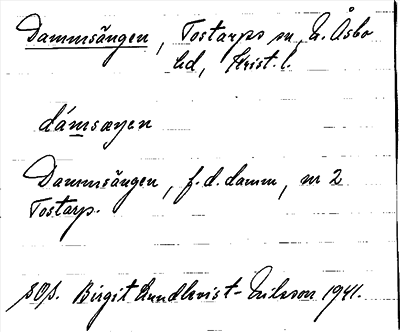 Dammsängen, Tostarps sn, Ö. Åsbo
hd, Krist. l.
dámsæŋen
Dammsängen, f.d. damm, nr 2
Tostarp.
SOS. Birgit Lundkvist-Eriksson 1941.